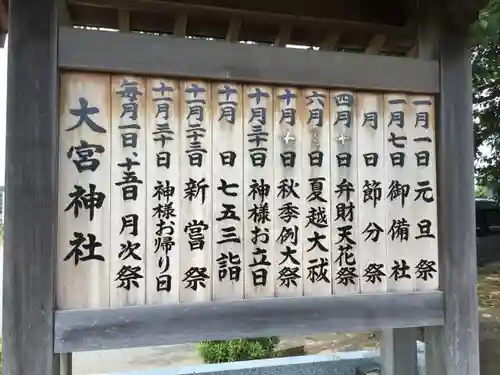 一月一日 元旦祭
一月七日 御備社
月 日 節分祭
四月十 日 弁財天花祭
六月十 日 夏越大祓
十月十 日 秋季例大祭
十月三十一日 神様お立日
十一月 日 七五三詣
十一月二十三日 新嘗祭
十一月三十日 神様お帰り日
毎月一日、十五日 月次祭
大宮神社